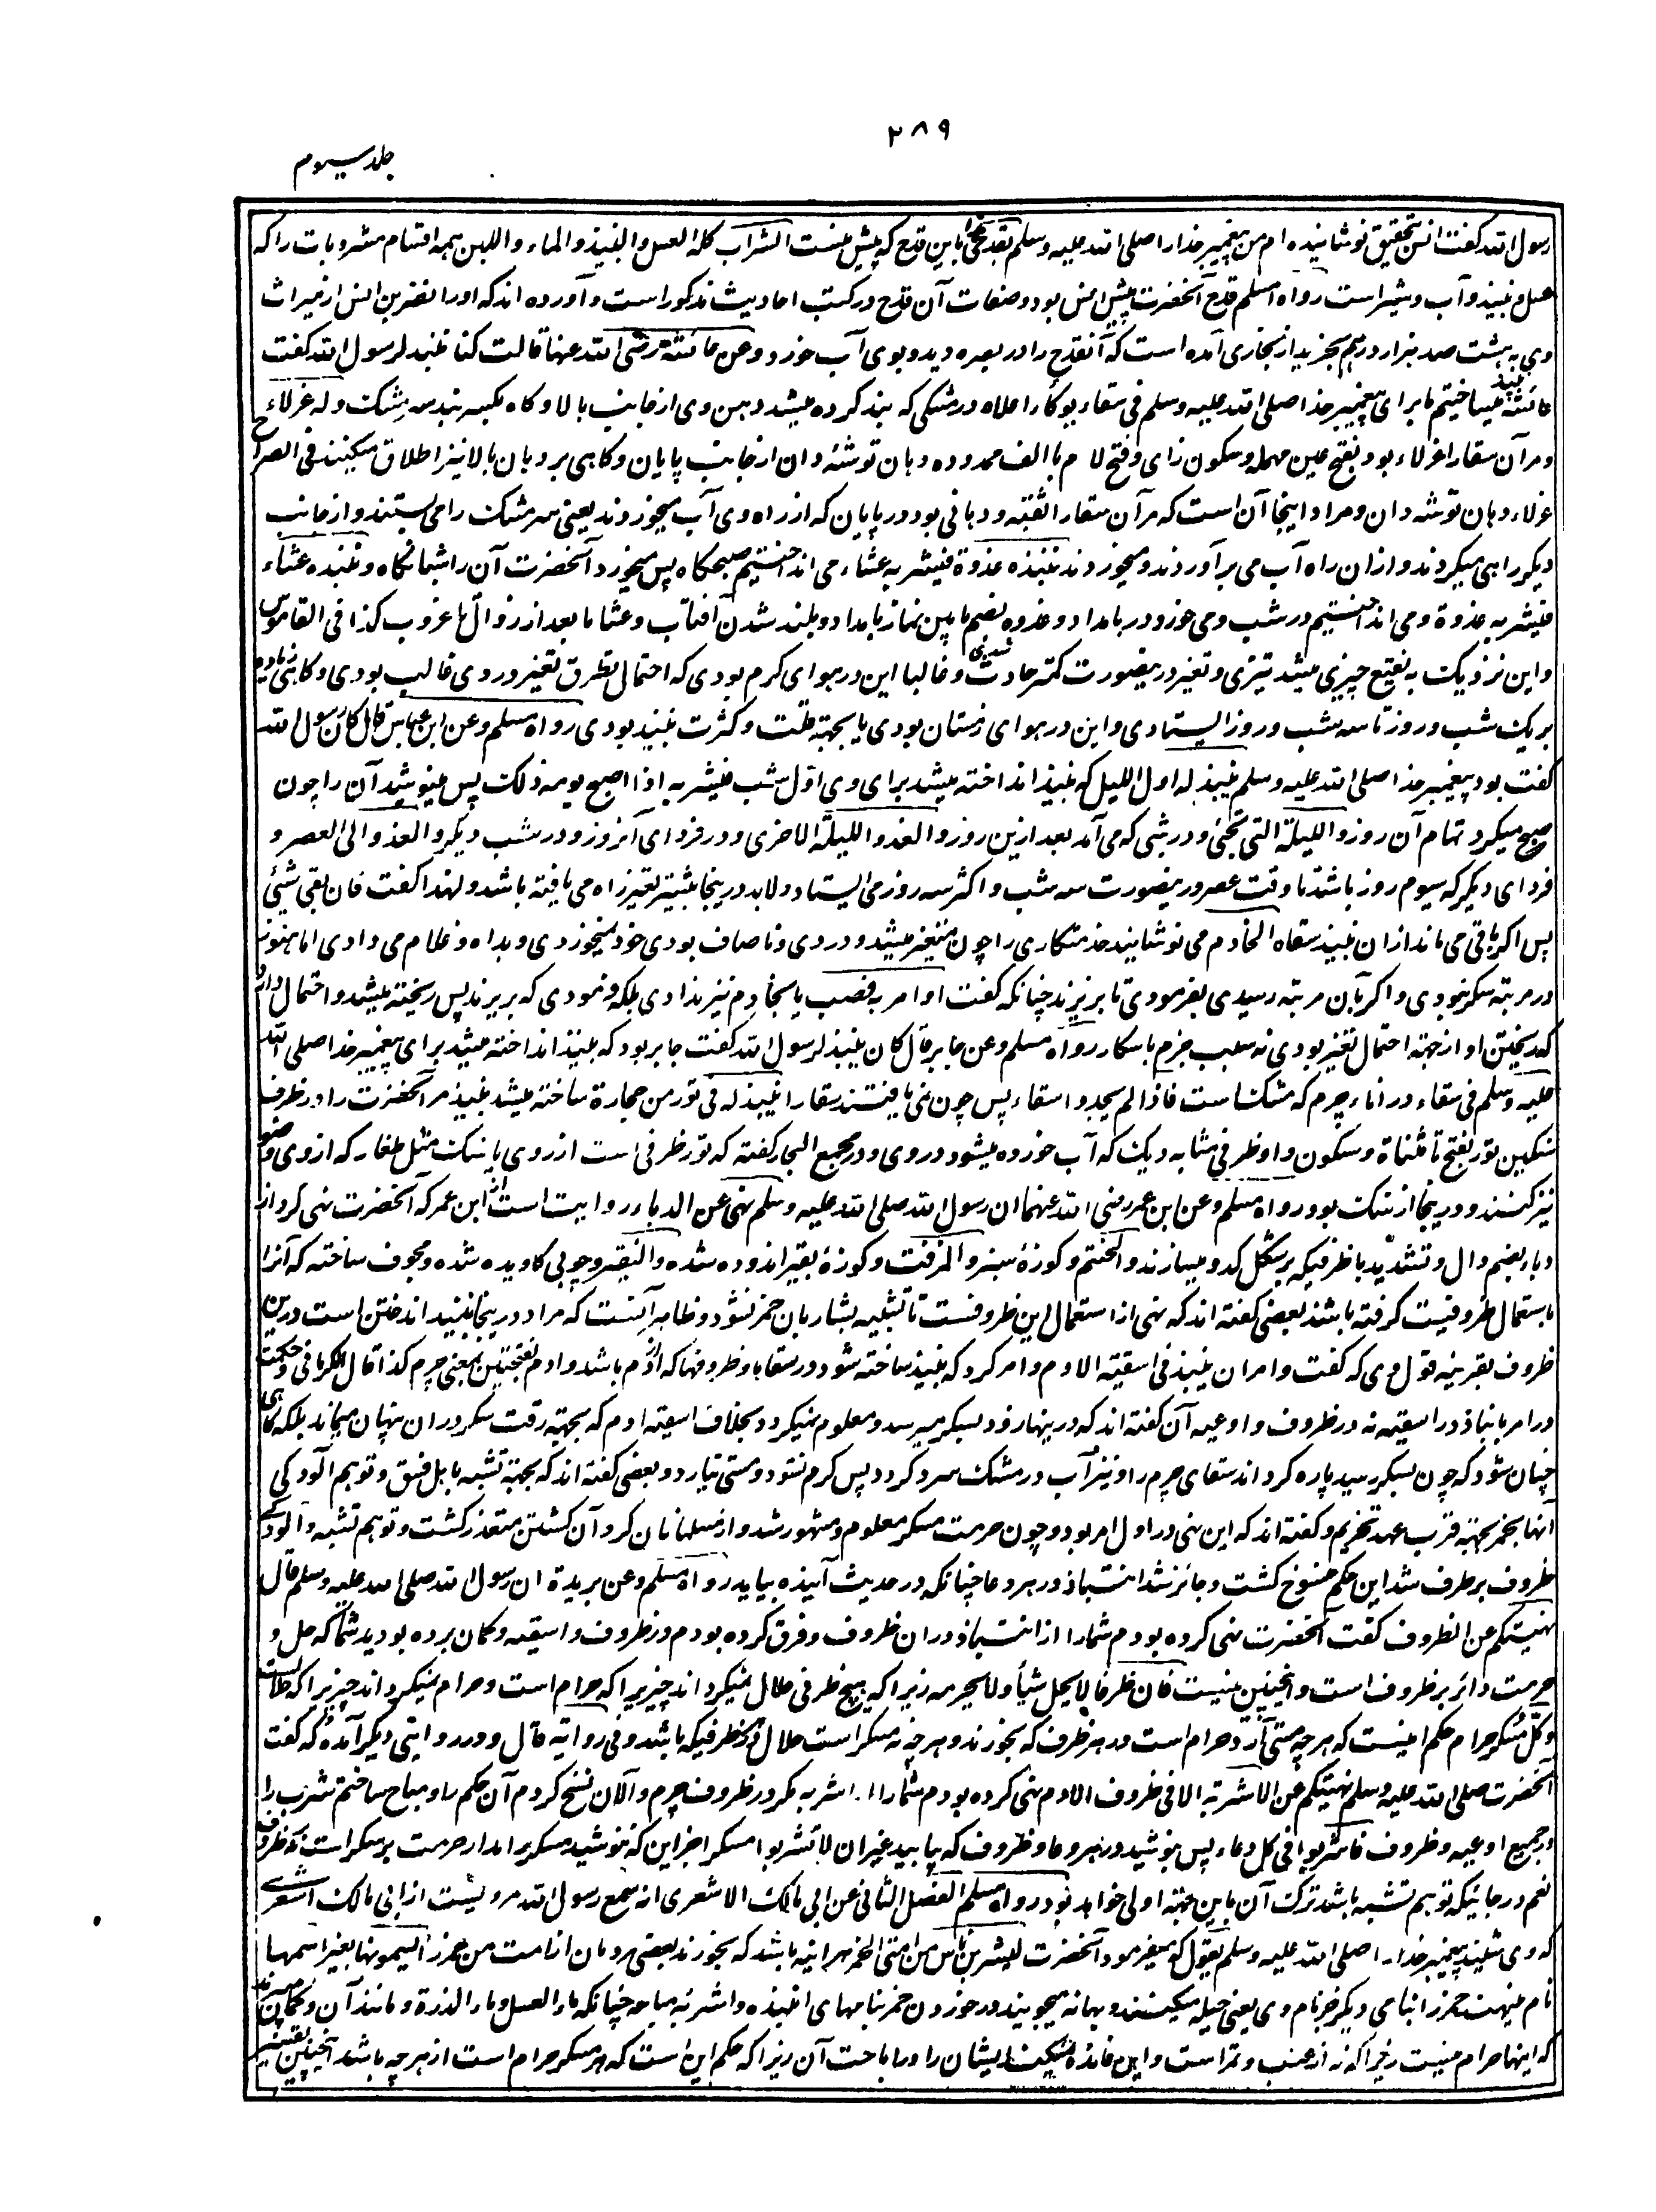 ۲۸۹
جلد سیوم
رسول الله گفت انس بتحقیق نوشانیده ام من پیغمبر خدا را صلی الله علیه وسلم بقدحی هذا باین قدح که پیش منست الشراب کله العسل والنبیذ والماء واللبن همه اقسام مشروبات را که
عسل و نبیذ و آب و شیر است رواه مسلم قدح آنحضرت پیش انس بود و صفات آن قدح در کتب احادیث مذکور است و آورده اند که اورا نضر بن انس از میراث
وی به هشت صد هزار درهم بخرید از بخاری آمده است که آنقدح را در بصره دید و بوی آب خورد وعن عائشة رضی الله عنها قالت کنا ننبذ لرسول الله گفت
عائشه نبیذ میساختیم ما برای پیغمبر خدا صلی الله علیه وسلم فی سقاء یوکأ اعلاه در مشکی که بند کرده میشد دهن وی از جانب بالا وکاء بکسر بند سر مشک وله عزلاء
و مر آن سقا را عزلاء بود بفتح عین مهمله و سکون زای و فتح لام با الف ممدوده دهان توشه دان از جانب پایان و کاهی بر دهان بالا نیز اطلاق میکنند فی الصراح
عزلاء دهان توشه دان و مراد اینجا آن است که مر آن سقا را ثقبه و دهانی بود در پایان که از راه وی آب میخوردند یعنی سر مشک را می بستند و از جانب
دیگر راهی میکردند و از ان راه آب می برآوردند و میخوردند ننبذه غدوة فیشربه عشاء می انداختیم صبحگاه پس میخورد آنحضرت آن را شبانگاه و ننبذه عشاء
فیشربه غدوة و می انداختیم در شب و می خورد در بامداد و غدوه بضم ما بین نماز بامداد و بلند شدن آفتاب و عشا ما بعد از زوال تا غروب کذا فی القاموس
و این نزدیک به نقیع چیزی میشد تیزی و تغیر در ینصورت کمتر حادث شدی و غالبا این در هوای گرم بودی که احتمال تطرق تغیر در وی غالب بودی و کاهی زیاده
بر یک شب و روز تا سه شب و روز ایستادی و این در هوای زمستان بودی یا بجهة قلت و کثرت نبیذ بودی رواه مسلم وعن ابن عباس قال کان رسول الله
گفت بود پیغمبر خدا صلی الله علیه وسلم ینبذ له اول اللیل که نبیذ انداخته میشد برای وی اول شب فیشربه اذا اصبح یومه ذلک پس مینوشید آن را چون
صبح میکرد تمام آن روز واللیلة التی تجئ و در شبی که می آمد بعد ازین روز والغد واللیلة الاخری و در فردای آنروز و در شب دیگر والغد الی العصر و
فردای دیگر که سیوم روز باشد تا وقت عصر در ینصورت سه شب و اکثر سه روز می ایستاد و لابد در ینجا بیشتر تغیر راه می یافته باشد و لهذا گفت فان بقی شیئ
پس اگر باقی می ماند از ان نبیذ سقاه الخادم می نوشانید خدمتکاری را چون متغیر میشد و دردی و ناصاف بودی خود نمیخوردی و بداه و غلام می دادی اما هنوز
در مرتبه سکر نبودی و اگر بآن مرتبه رسیدی بفرمودی تا بریزند چنانکه گفت او امر به فصب یا بخادم نیز ندادی بلکه فرمودی که بریزند پس ریخته میشد و احتمال دارد
که ریختن او از جهة احتمال تغیر بودی نه سبب جزم باسکار رواه مسلم وعن جابر قال کان ینبذ لرسول الله گفت جابر بود که نبیذ انداخته میشد برای پیغمبر خدا صلی الله
علیه وسلم فی سقاء در اناء چرم که مشک است فاذا لم یجدوا سقاء پس چون نمی یافتند سقا را ینبذ له فی تور من حجارة ساخته میشد نبیذ مر آنحضرت را در ظرف
سنگین تور بفتح تا مثناة و سکون واو ظرفی مشابه دیک که آب خورده میشود در وی و در مجمع البحار گفته که تور ظرفی است از روی یا سنگ مثل طغار که از وی وضو
نیز کنند و در ینجا از سنگ بود رواه مسلم وعن ابن عمر رضی الله عنهما ان رسول الله صلی الله علیه وسلم نهی عن الدباء روایت است از ابن عمر که آنحضرت نهی کرد از
دباء بضم دال و تشدید با ظرفیکه بر شکل کدو میسازند والحنتم و کوزهٔ سبز والمزفت و کوزهٔ بقیر اندوده شده والنقیر و چوبی کاویده شده و مجوف ساخته که آنرا
باستعمال ظروفیت گرفته باشند بعضی گفته اند که نهی از استعمال این ظروفست تا تشبیه بشاربان خمر نشود و ظاهر آنست که مراد در ینجا نبیذ انداختن است درین
ظروف بقرینه قول وی که گفت وامر ان ینبذ فی اسقیة الادم و امر کرد که نبیذ ساخته شود در سقاها و ظرفها که از ادم باشد و ادم بفتحتین بمعنی چرم کذا قال الکرمانی و حکمت
در امر بانباذ در اسقیه نه در ظروف و اوعیه آن گفته اند که در ینها زود بسکر میرسد و معلوم نمیگردد بخلاف اسقیه ادم که بجهة رقت سکر در ان پنهان نمیماند بلکه گاهی
چنان شود که چون بسکر رسید پاره گرداند سقای چرم را و نیز آب در مشک سرد گردد پس گرم نشود و مستی نیارد و بعضی گفته اند که بجهة تشبه با اهل فسق و توهم آلودگی
آنها بخمر بجهة قرب عهد تحریم و گفته اند که این نهی در اول امر بود و چون حرمت مسکر معلوم و مشهور شد و از مسلمانان گرد آن گشتن متعذر گشت و توهم تشبه و آلودگی
ظروف بر طرف شد این حکم منسوخ گشت و جائز شد انتباذ در هر وعا چنانکه در حدیث آینده بیاید رواه مسلم وعن بریدة ان رسول الله صلی الله علیه وسلم قال
نهیتکم عن الظروف گفت آنحضرت نهی کرده بودم شما را از انتباذ در ان ظروف و فرق کرده بودم در ظروف و اسقیه و گمان برده بودید شما که حل و
حرمت دائر بر ظروف است و اینچنین نیست فان ظرفا لا یحل شیأ ولا یحرمه زیرا که هیچ ظرفی حلال نمیگرداند چیزیرا که حرام است و حرام نمیگرداند چیزیرا که حلال است
وکل مسکر حرام حکم اینست که هر چه مستی آرد حرام است در هر ظرف که بخورند و هر چه نه مسکر است حلال در هر ظرفیکه باشد وفی روایة قال و در روایتی دیگر آمده که گفت
آنحضرت صلی الله علیه وسلم نهیتکم عن الاشربة الا فی ظروف الادم نهی کرده بودم شما را از اشربه مگر در ظروف چرم و الان نسخ کردم آن حکم را و مباح ساختم شرب را
در جمیع اوعیه و ظروف فاشربوا فی کل وعاء پس بنوشید در هر وعا و ظروف که بیابید غیر ان لا تشربوا مسکرا جز این که ننوشید مسکر را مدار حرمت بر مسکر است نه ظروف
نعم در جائیکه توهم تشبه باشد ترک آن باین جهة اولی خواهد بود رواه مسلم الفصل الثانی عن ابی مالک الاشعری انه سمع رسول الله مرویست از ابی مالک اشعری
که وی شنید پیغمبر خدا را صلی الله علیه وسلم یقول که میفرمود آنحضرت لیشربن ناس من امتی الخمر هر آینه باشد که بخورند بعضی مردمان از امت من خمر را یسمونها بغیر اسمها
نام مینهند خمر را بنامی دیگر جز نام وی یعنی حیله میکنند و بهانه میجویند در خوردن خمر بنامهای انبذه و اشربه مباحه چنانکه ماء العسل و ماء الذرة و مانند آن و گمان میبرند
که اینها حرام نیست زیرا که نه از عنب و تمر است و این فائده نمیکند ایشان را در اباحت آن زیرا که حکم این است که هر مسکر حرام است از هر چه باشد اینچنین تفسیر